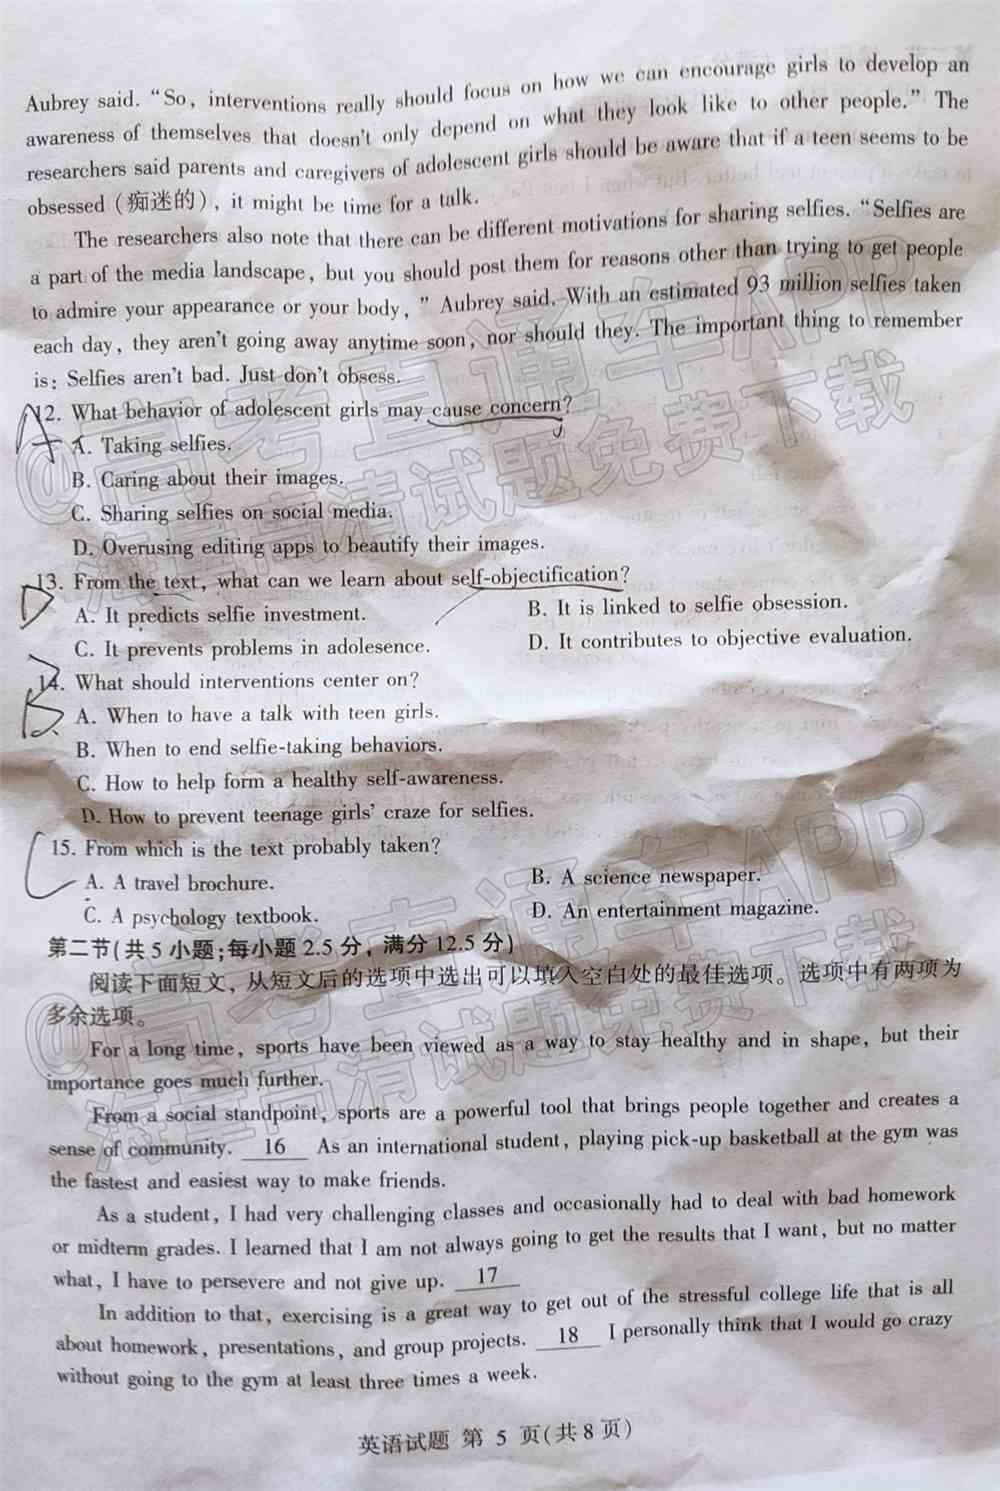 Aubrey said. “So, interventions really should focus on how we can encourage girls to develop an
awareness of themselves that doesn't only depend on what they look like to other people.” The
researchers said parents and caregivers of adolescent girls should be aware that if a teen seems to be
obsessed (痴迷的), it might be time for a talk.
The researchers also note that there can be different motivations for sharing selfies. “Selfies are
a part of the media landscape, but you should post them for reasons other than trying to get people
to admire your appearance or your body,” Aubrey said. With an estimated 93 million selfies taken
each day, they aren't going away anytime soon, nor should they. The important thing to remember
is: Selfies aren't bad. Just don't obsess.
12. What behavior of adolescent girls may cause concern?
A. Taking selfies.
B. Caring about their images.
C. Sharing selfies on social media.
D. Overusing editing apps to beautify their images.
13. From the text, what can we learn about self-objectification?
A. It predicts selfie investment.
B. It is linked to selfie obsession.
C. It prevents problems in adolesence.
D. It contributes to objective evaluation.
14. What should interventions center on?
A. When to have a talk with teen girls.
B. When to end selfie-taking behaviors.
C. How to help form a healthy self-awareness.
D. How to prevent teenage girls' craze for selfies.
15. From which is the text probably taken?
A. A travel brochure.
B. A science newspaper.
C. A psychology textbook.
D. An entertainment magazine.
第二节(共5小题;每小题2.5分,满分12.5分)
阅读下面短文,从短文后的选项中选出可以填入空白处的最佳选项。选项中有两项为
多余选项。
For a long time, sports have been viewed as a way to stay healthy and in shape, but their
importance goes much further.
From a social standpoint, sports are a powerful tool that brings people together and creates a
sense of community. 16 As an international student, playing pick-up basketball at the gym was
the fastest and easiest way to make friends.
As a student, I had very challenging classes and occasionally had to deal with bad homework
or midterm grades. I learned that I am not always going to get the results that I want, but no matter
what, I have to persevere and not give up. 17
In addition to that, exercising is a great way to get out of the stressful college life that is all
about homework, presentations, and group projects. 18 I personally think that I would go crazy
without going to the gym at least three times a week.
英语试题 第 5 页(共8页)
@高考直通车APP
海量高清试题免费下载
@高考直通车APP
海量高清试题免费下载